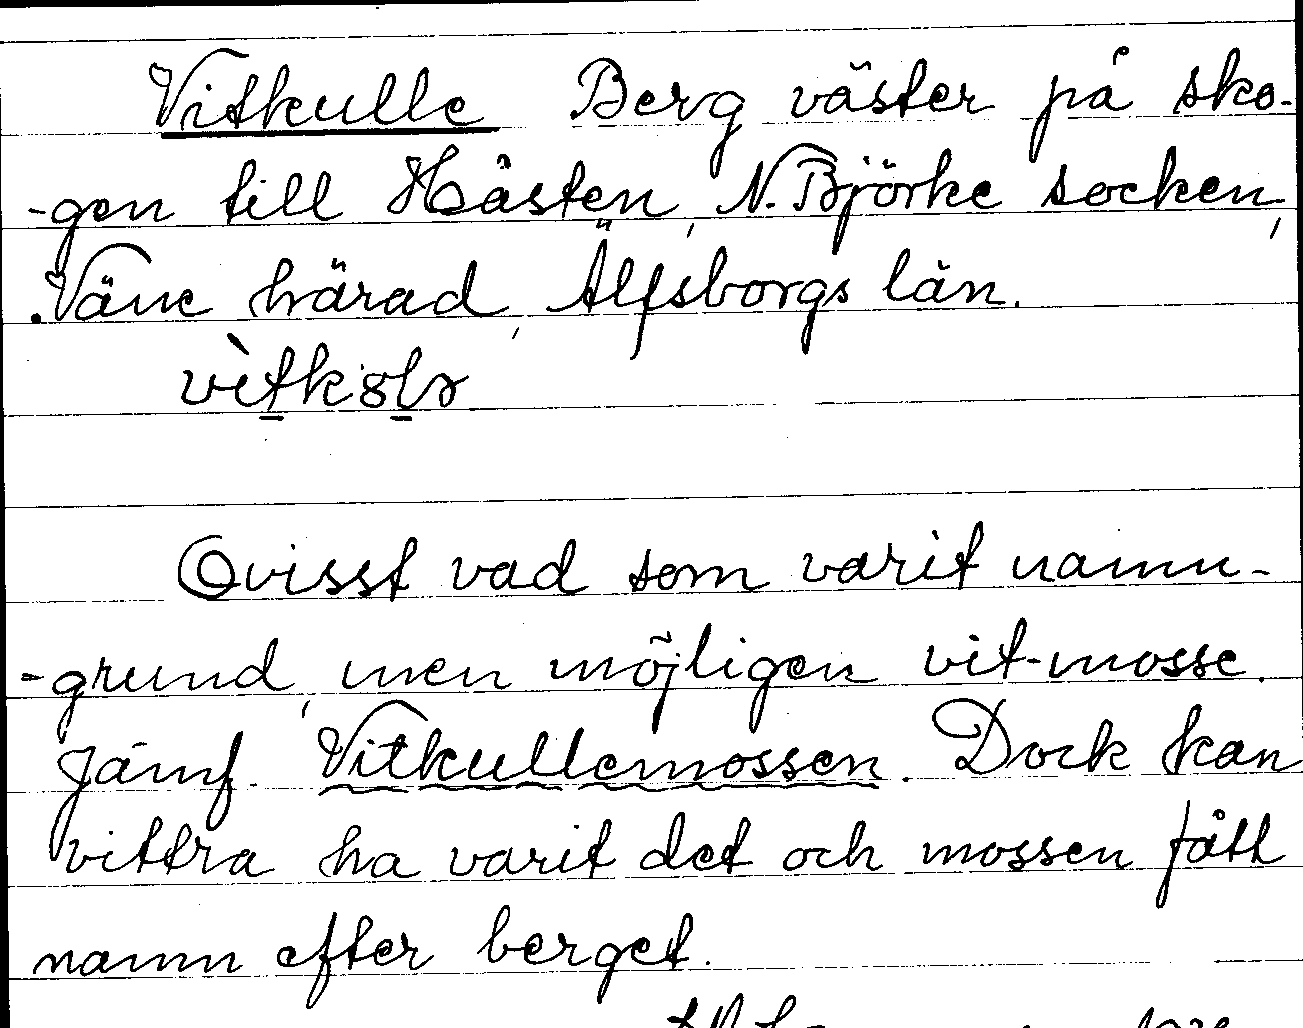 Vitkulle Berg väster på sko-
-gen till Håsten, N. Björke socken,
Väne härad, Älfsborgs län.
Ovisst vad som varit namn-
-grund, men möjligen vit-mosse.
Jämf. Vitkullemossen. Dock kan
vittra ha varit det och mossen fått
namn efter berget.